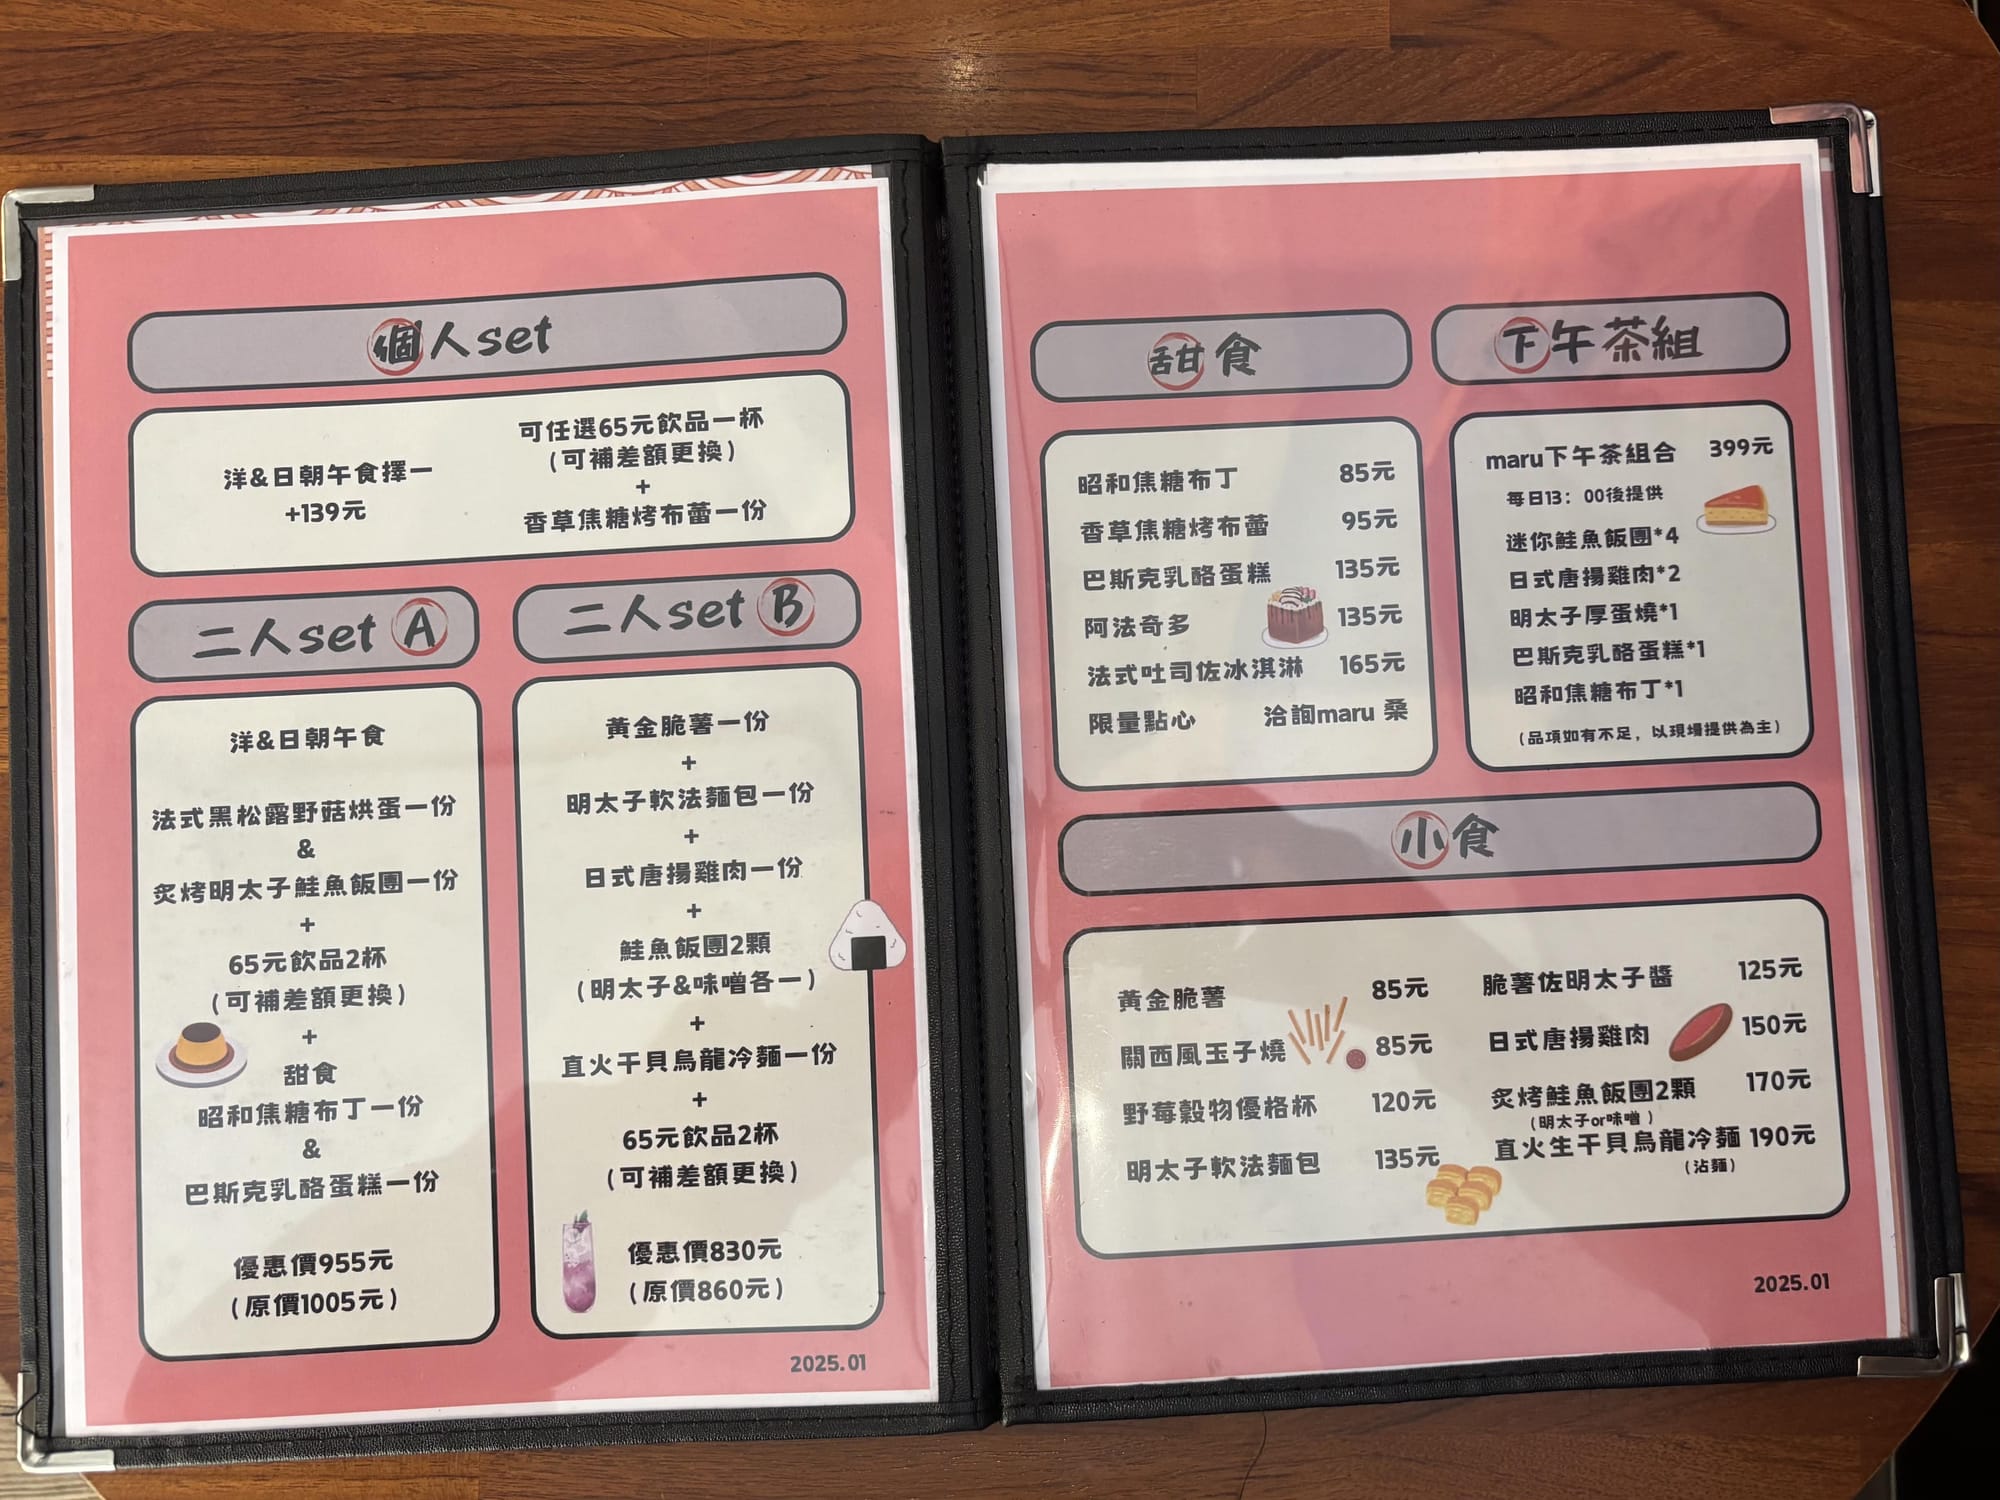 個人set
洋&日朝午食擇一
+139元
可任選65元飲品一杯
(可補差額更換)
+
香草焦糖烤布蕾一份
二人set A
洋&日朝午食
法式黑松露野菇烘蛋一份
&
炙烤明太子鮭魚飯團一份
+
65元飲品2杯
(可補差額更換)
+
甜食
昭和焦糖布丁一份
&
巴斯克乳酪蛋糕一份
優惠價955元
(原價1005元)
二人set B
黃金脆薯一份
+
明太子軟法麵包一份
+
日式唐揚雞肉一份
+
鮭魚飯團2顆
(明太子&味噌各一)
+
直火干貝烏龍冷麵一份
+
65元飲品2杯
(可補差額更換)
優惠價830元
(原價860元)
2025.01
甜食
昭和焦糖布丁 85元
香草焦糖烤布蕾 95元
巴斯克乳酪蛋糕 135元
阿法奇多 135元
法式吐司佐冰淇淋 165元
限量點心 洽詢maru 桑
下午茶組
maru下午茶組合 399元
每日13：00後提供
迷你鮭魚飯團*4
日式唐揚雞肉*2
明太子厚蛋燒*1
巴斯克乳酪蛋糕*1
昭和焦糖布丁*1
(品項如有不足，以現場提供為主)
小食
黃金脆薯 85元
關西風玉子燒 85元
野莓穀物優格杯 120元
明太子軟法麵包 135元
脆薯佐明太子醬 125元
日式唐揚雞肉 150元
炙烤鮭魚飯團2顆 170元
(明太子or味噌)
直火生干貝烏龍冷麵 190元
(沾麵)
2025.01